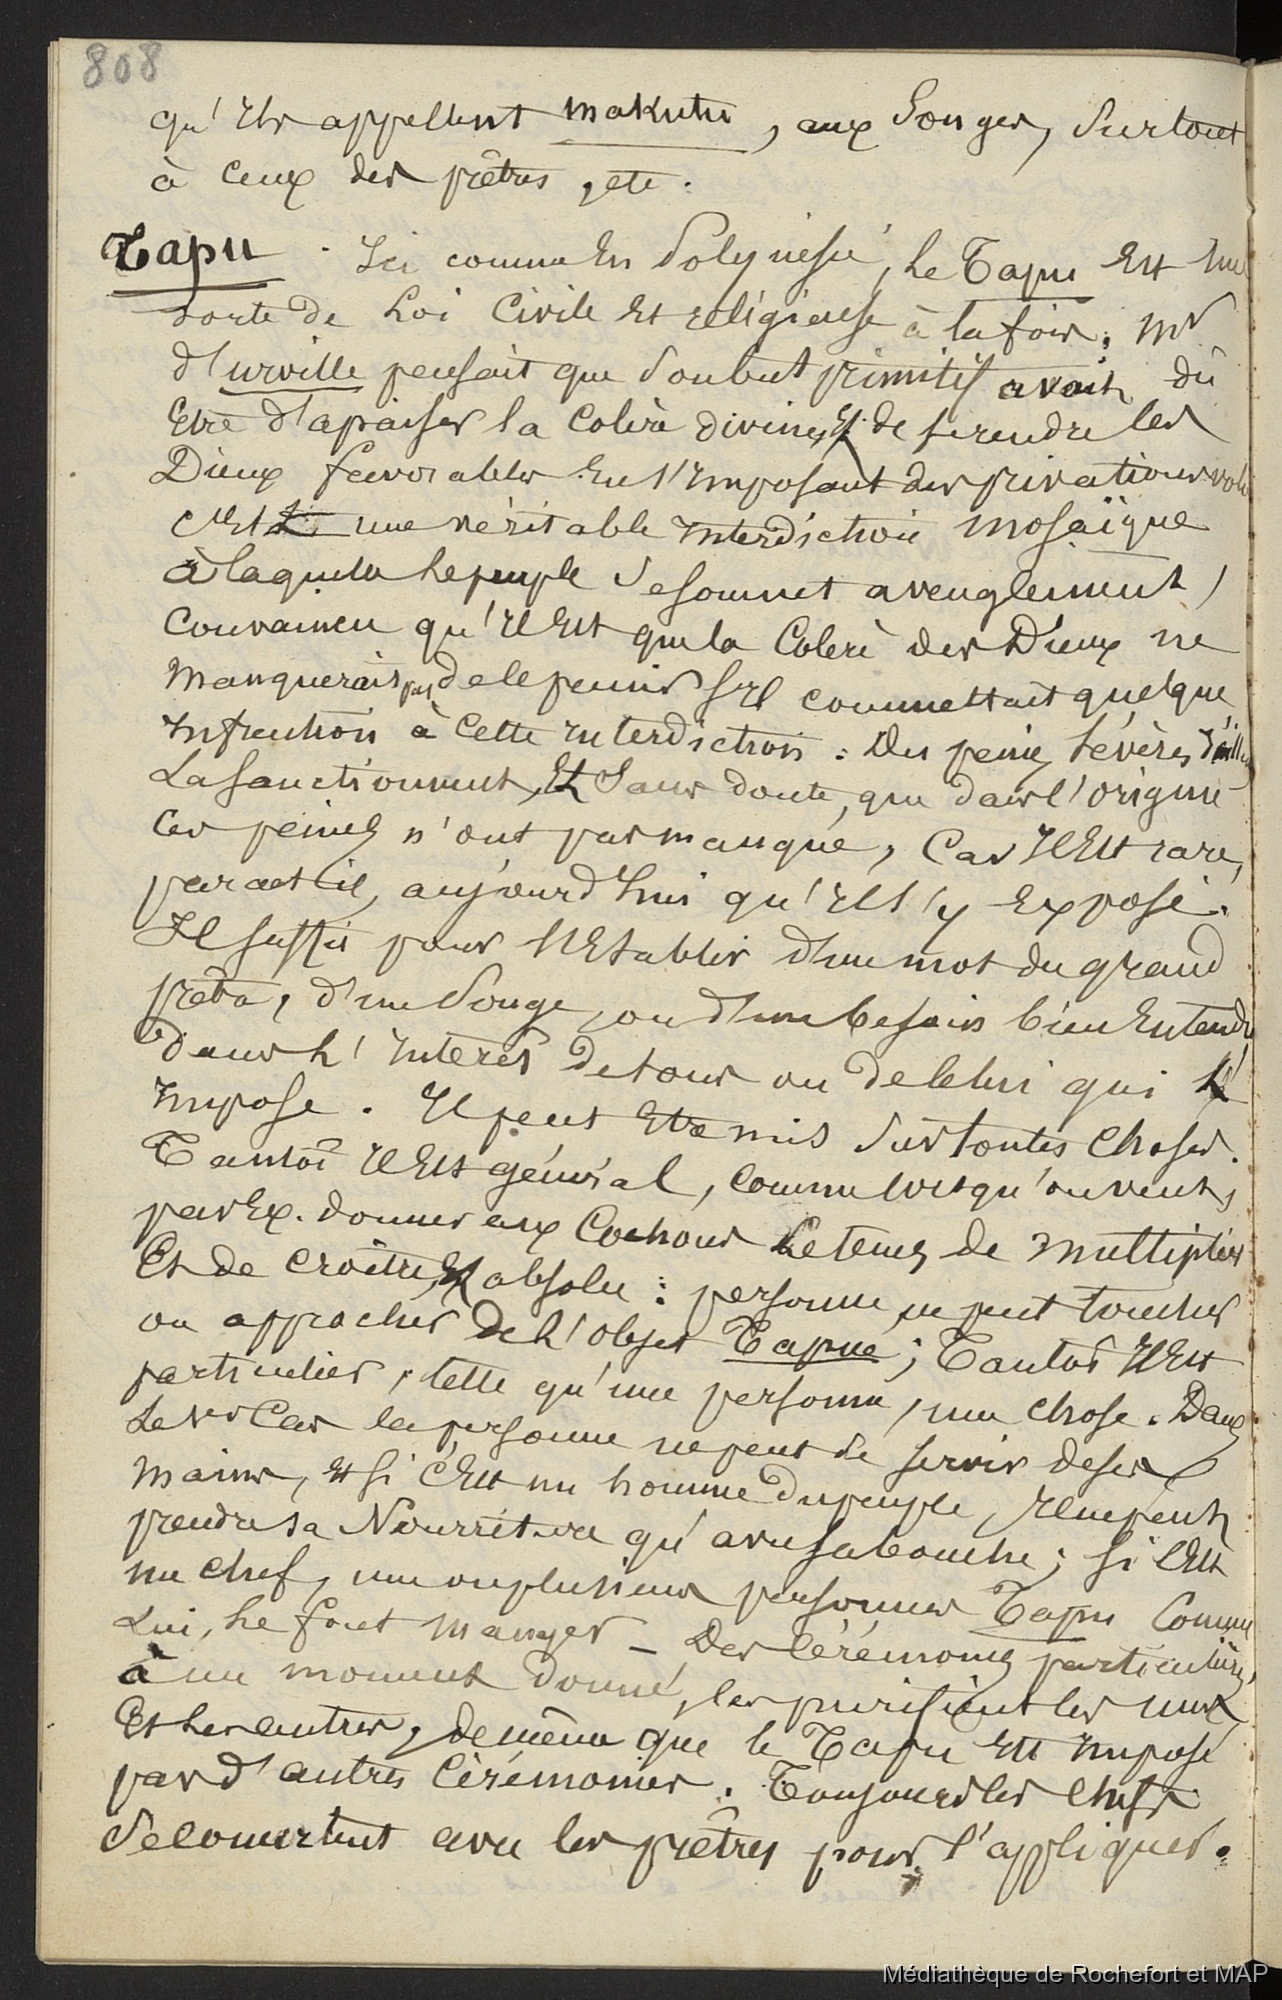 808
qu'ils appellent makutu, aux songes, surtout
à ceux des prêtres, etc.
Tapu. Ici comme en Polynésie, le Tapu est une
sorte de loi civile et religieuse à la fois; Mr
d'urville pensait que son but primitif avait dû
être d'apaiser la colère divine, et de se rendre les
Dieux favorables en s'imposant des privations
C'est une véritable interdiction mosaïque
à laquelle le peuple se soumet aveuglement,
convaincu qu'il est que la colère des Dieux ne
manquerait pas de le punir s'il commettait quelque
infraction à cette interdiction: Des peines sévères
la sanctionnent, et sans doute, que dans l'origine
ces peines n'ont pas manqué, car il est rare,
parait-il, aujourd'hui qu'il s'y expose.
Il suffit pour l'établir d'un mot du grand
prêtre, d'un songe, ou d'un besoin bien entendu
dans l'intérêt de tous ou de celui qui l'
impose. Il peut être mis sur toutes choses.
Tantôt il est général, comme lorsqu'on veut,
par Ex. donner aux cochons le temps de multiplier
et de croître, et absolu: personne ne peut toucher
ou approcher de l'objet Tapué; Tantôt il est
particulier, telle qu'une personne, une chose. Dans
le 1er cas la personne ne peut se servir de ses
mains, et si c'est un homme du peuple, il ne peut
prendre sa nourriture qu'avec sa bouche; si c'est
un chef, une ou plusieurs personnes Tapu comme
lui, le font manger _ Des cérémonies particulières,
à un moment donné, les purifient les uns
et les autres, de même que le Tapu est imposé
par d'autres cérémonies. Toujours les chefs
se concertent avec les prêtres pour l'appliquer.
Médiathèque de Rochefort et MAP